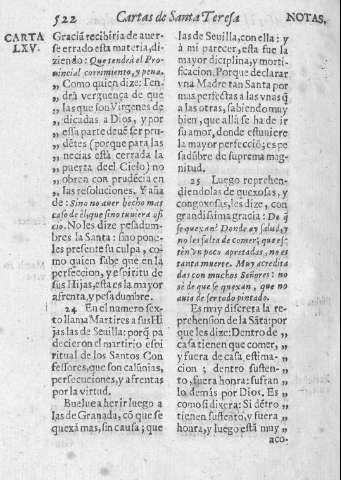 522 Cartas de Santa Teresa NOTAS,
CARTA
LXV.
Graciã recibiria de auer-
se errado esta materia, di-
ziendo: Que tendrà el Pro-
uincial corrimiento, y pena.
„ Como quien dize: Ten-
„ drà verguença de que
„ las que son Virgenes de
„ dicadas a Dios, y por
„ essa parte deuē ser pru-
„ dētes (porque para las
„ necias està cerrada la
„ puerta deel Cielo) no
„ obren con prudēcia en
„ las resoluciones. Y aña
de: Sino no auer hecho mas
caso de èl, que sino tuuiera ofi-
cio. No les dize pesadum-
bres la Santa: sino pone-
les presente su culpa, co-
mo quien sabe que en la
perfeccion, y espiritu de
sus Hijas, esta es la mayor
afrenta, y pesadumbre.
24 En el numero sex-
to llama Martires a sus Hi
jas las de Seuilla: porq̃ pa
decieron el martirio espi
ritual de los Santos Con
fessores, que son calũnias,
persecuciones, y afrentas
por la virtud.
Buelue a herir luego a
las de Granada, cõ que se
quexã mas, sin causa; que
las de Seuilla, con ella: y
à mi parecer, esta fue la
mayor diciplina, y morti-
ficacion. Porque declarar
vna Madre tan Santa por
mas perfectas a las vnas q̃
a las otras, sabiendo muy
bien, que allà se ha de ir
su amor, donde estuuiere
la mayor perfecciõ; es pe
sadũbre de suprema mag-
nitud.
25 Luego reprehen-
diendolas de quexosas, y
congoxosas, les dize, con
grandissima gracia: De q̃
se quexan? Donde ay salud, y
no les falta de comer; que es-
tèn vn poco apretadas, no es
tanta muerte. Muy acredita
das con muchos Señores: no
sè de que se quexan, que no
auia de ser todo pintado.
Es muy discreta la re-
prehension de la Sãta: por
que les dize: Dentro de „
casa tienen que comer, „
y fuera de casa, estima- „
cion; dentro susten- „
to, fuera honra: sufran „
lo demàs por Dios. Es
como si dixera: Si dētro „
tienen sustento, y fuera „
honra, y luego està muy „
aco-